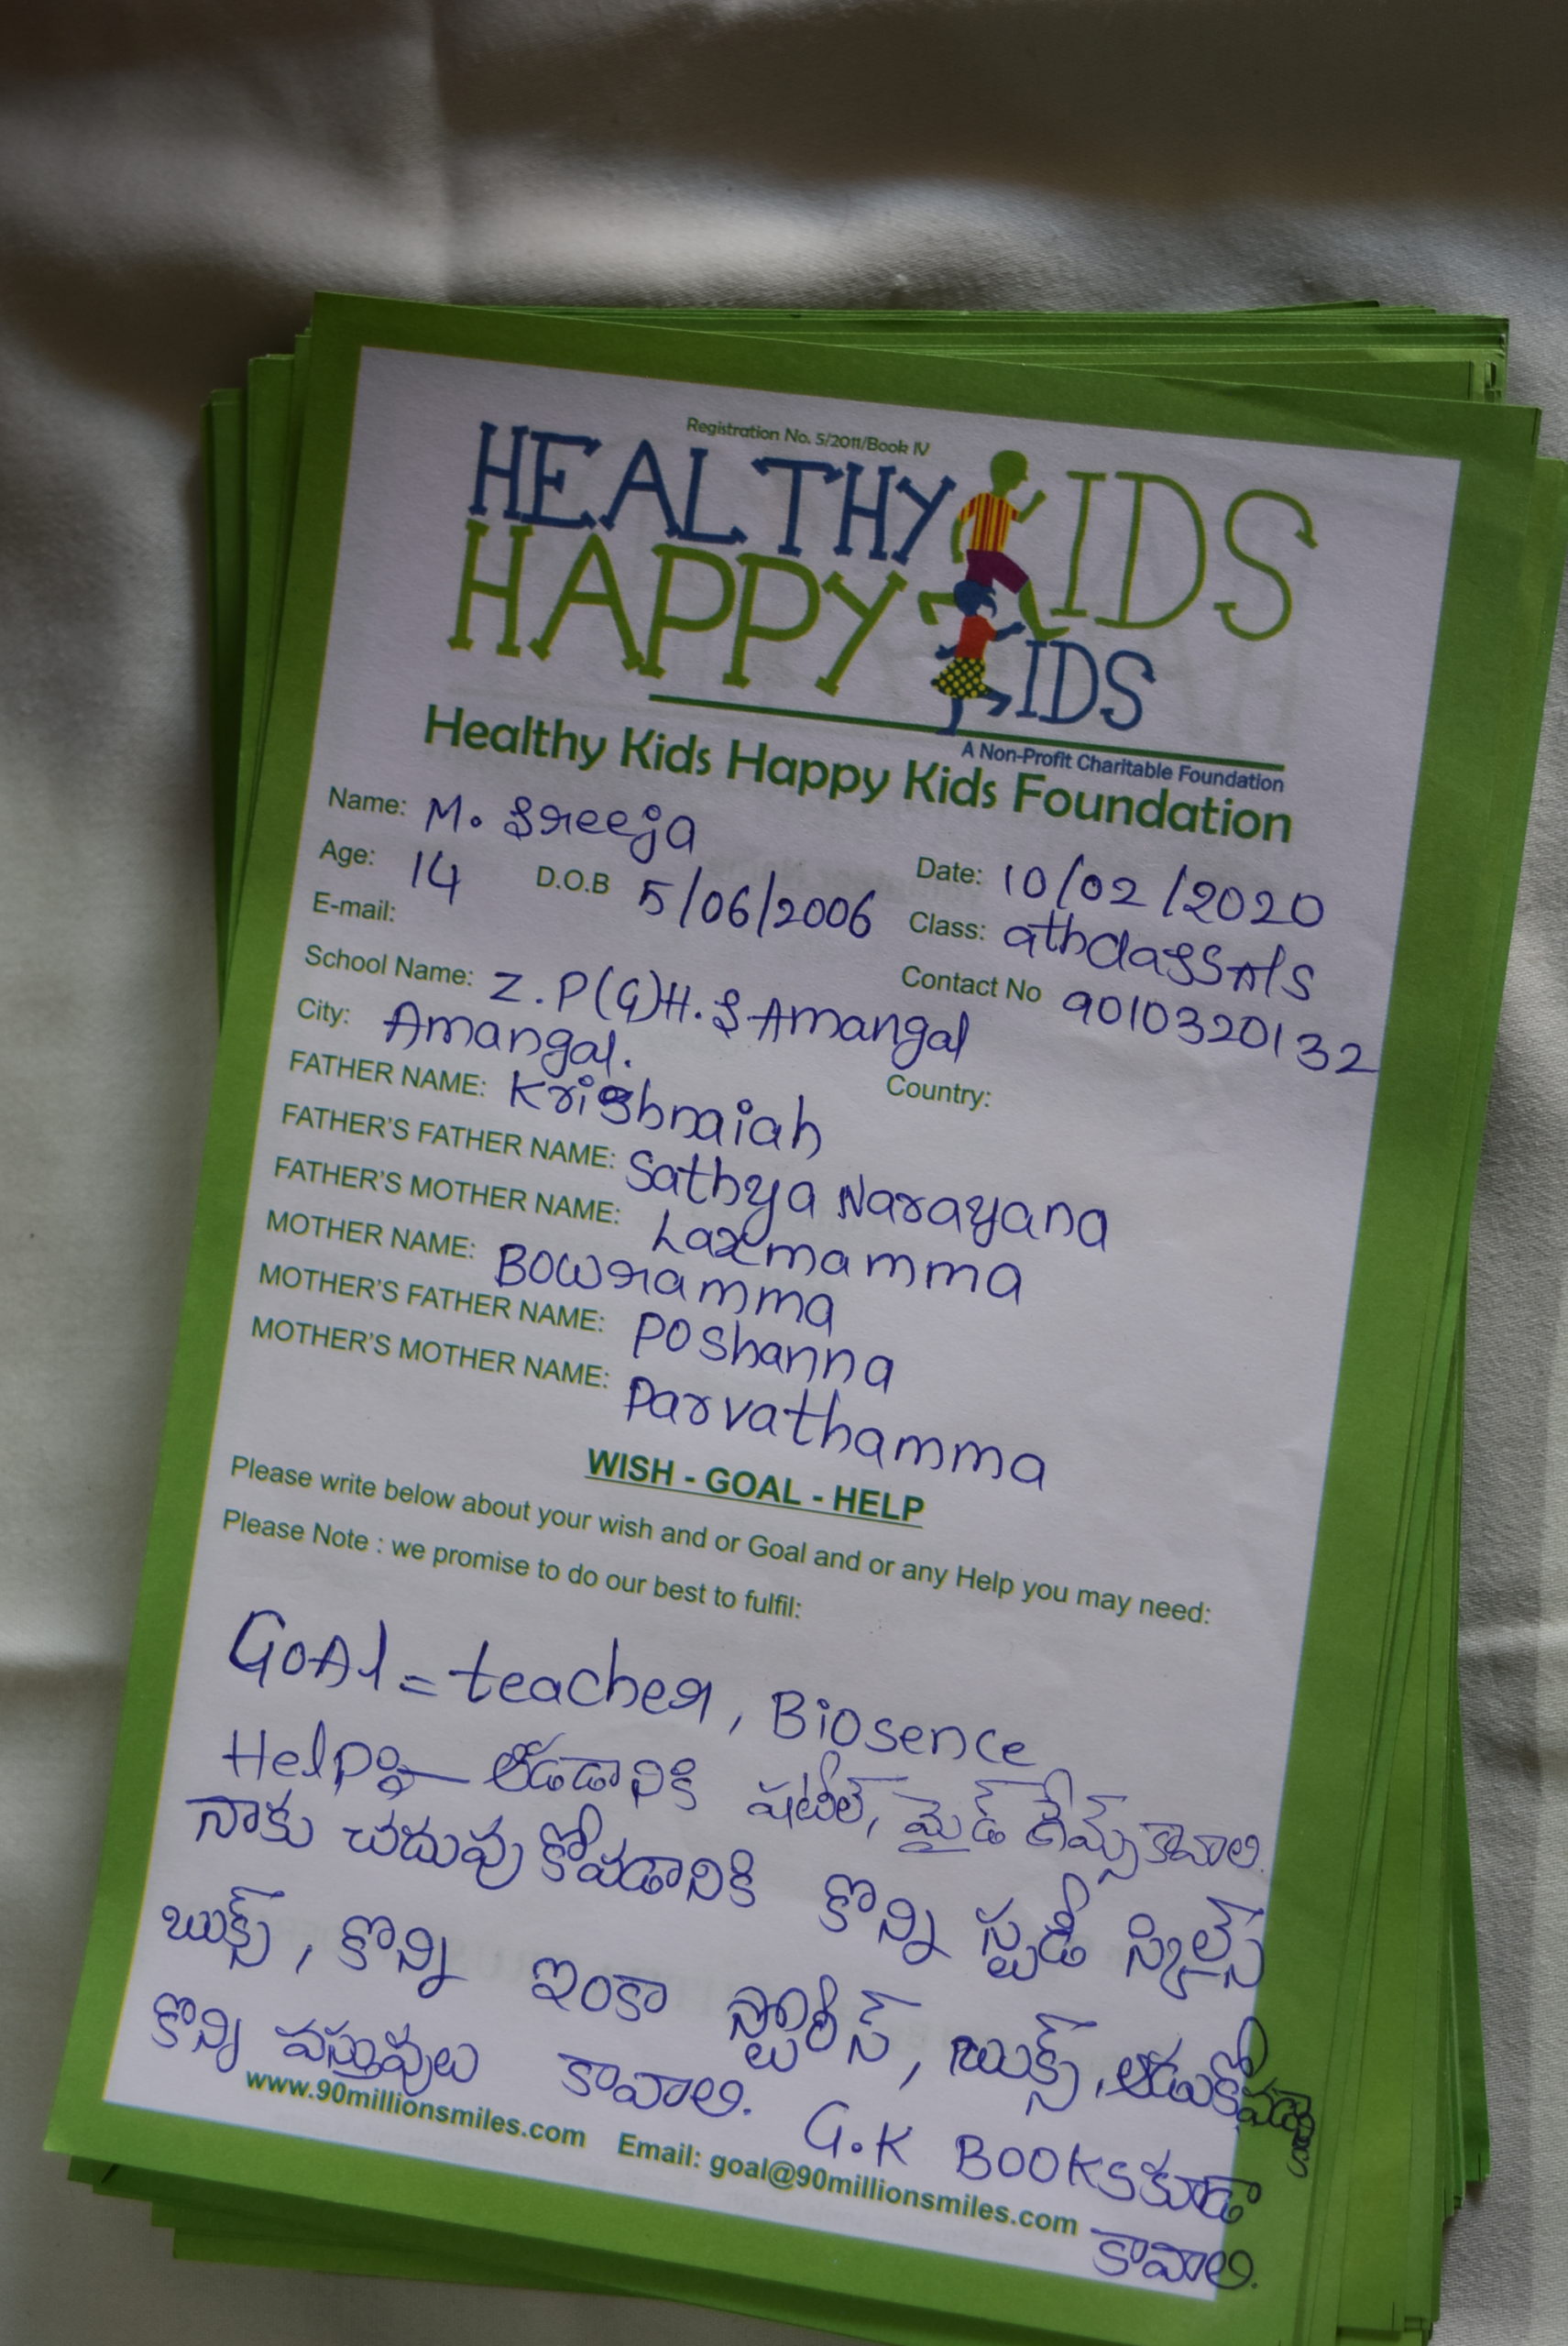 Registration No. 5/2011/Book IV
HEALTHY KIDS
HAPPY KIDS
A Non-Profit Charitable Foundation
Healthy Kids Happy Kids Foundation
Name: M. Sreeja
Date: 10/02/2020
Age: 14 D.O.B 5/06/2006 Class: 9th class A/S
E-mail: Contact No 9010320132
School Name: Z.P(G)H.S Amangal
City: Amangal. Country:
FATHER NAME: Krishnaiah
FATHER'S FATHER NAME: Sathya Narayana
FATHER'S MOTHER NAME: Laxmamma
MOTHER NAME: Bowramma
MOTHER'S FATHER NAME: Poshanna
MOTHER'S MOTHER NAME: Parvathamma
WISH - GOAL - HELP
Please write below about your wish and or Goal and or any Help you may need:
Please Note : we promise to do our best to fulfil:
GOAl = teacher, Biosence
Help:- ఆడడానికి షటిల్, మైడ్ గేమ్స్ కావాలి.
నాకు చదువుకోవడానికి కొన్ని స్టడీ స్కిల్స్
బుక్స్, కొన్ని ఇంకా స్టోరీస్, బుక్స్, ఆడుకోవడానికి
కొన్ని వస్తువులు కావాలి. G.K BOOKS కూడా
కావాలి.
www.90millionsmiles.com Email: goal@90millionsmiles.com